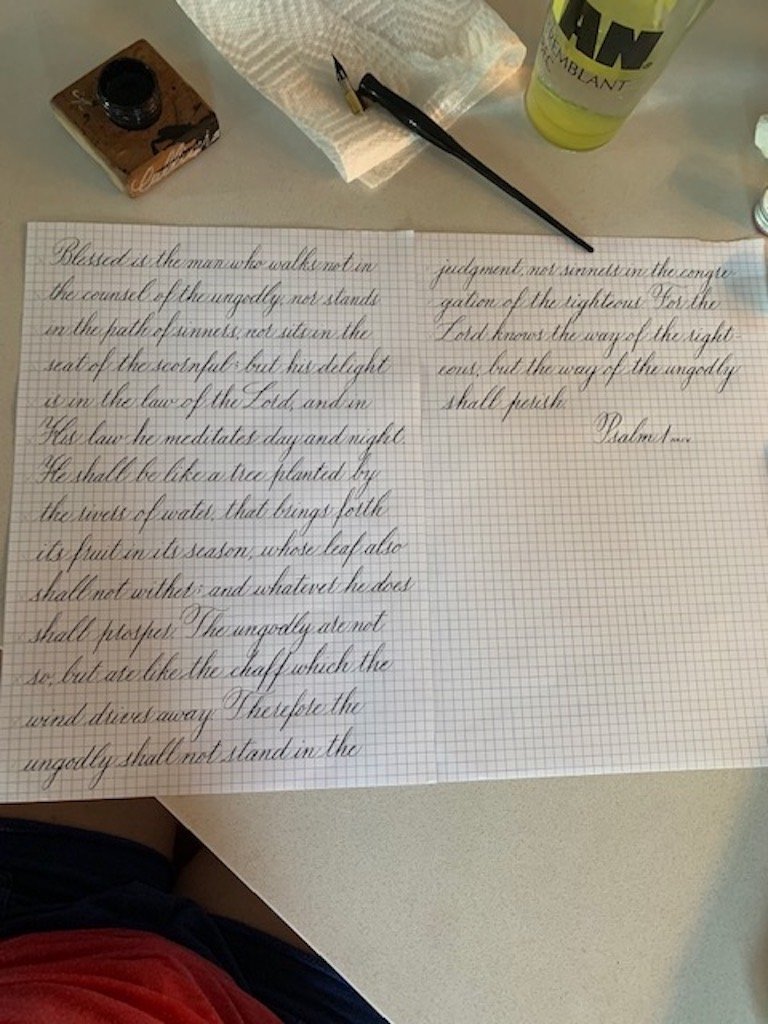 AN
REMBLANT
EC
Blessed is the man who walks not in
the counsel of the ungodly, nor stands
in the path of sinners, nor sits in the
seat of the scornful; but his delight
is in the law of the Lord, and in
His law he meditates day and night.
He shall be like a tree planted by
the rivers of water, that brings forth
its fruit in its season, whose leaf also
shall not wither; and whatever he does
shall prosper. The ungodly are not
so, but are like the chaff which the
wind drives away. Therefore the
ungodly shall not stand in the
judgment, nor sinners in the congre-
gation of the righteous. For the
Lord knows the way of the right-
eous, but the way of the ungodly
shall perish.
Psalm 1 NKJV